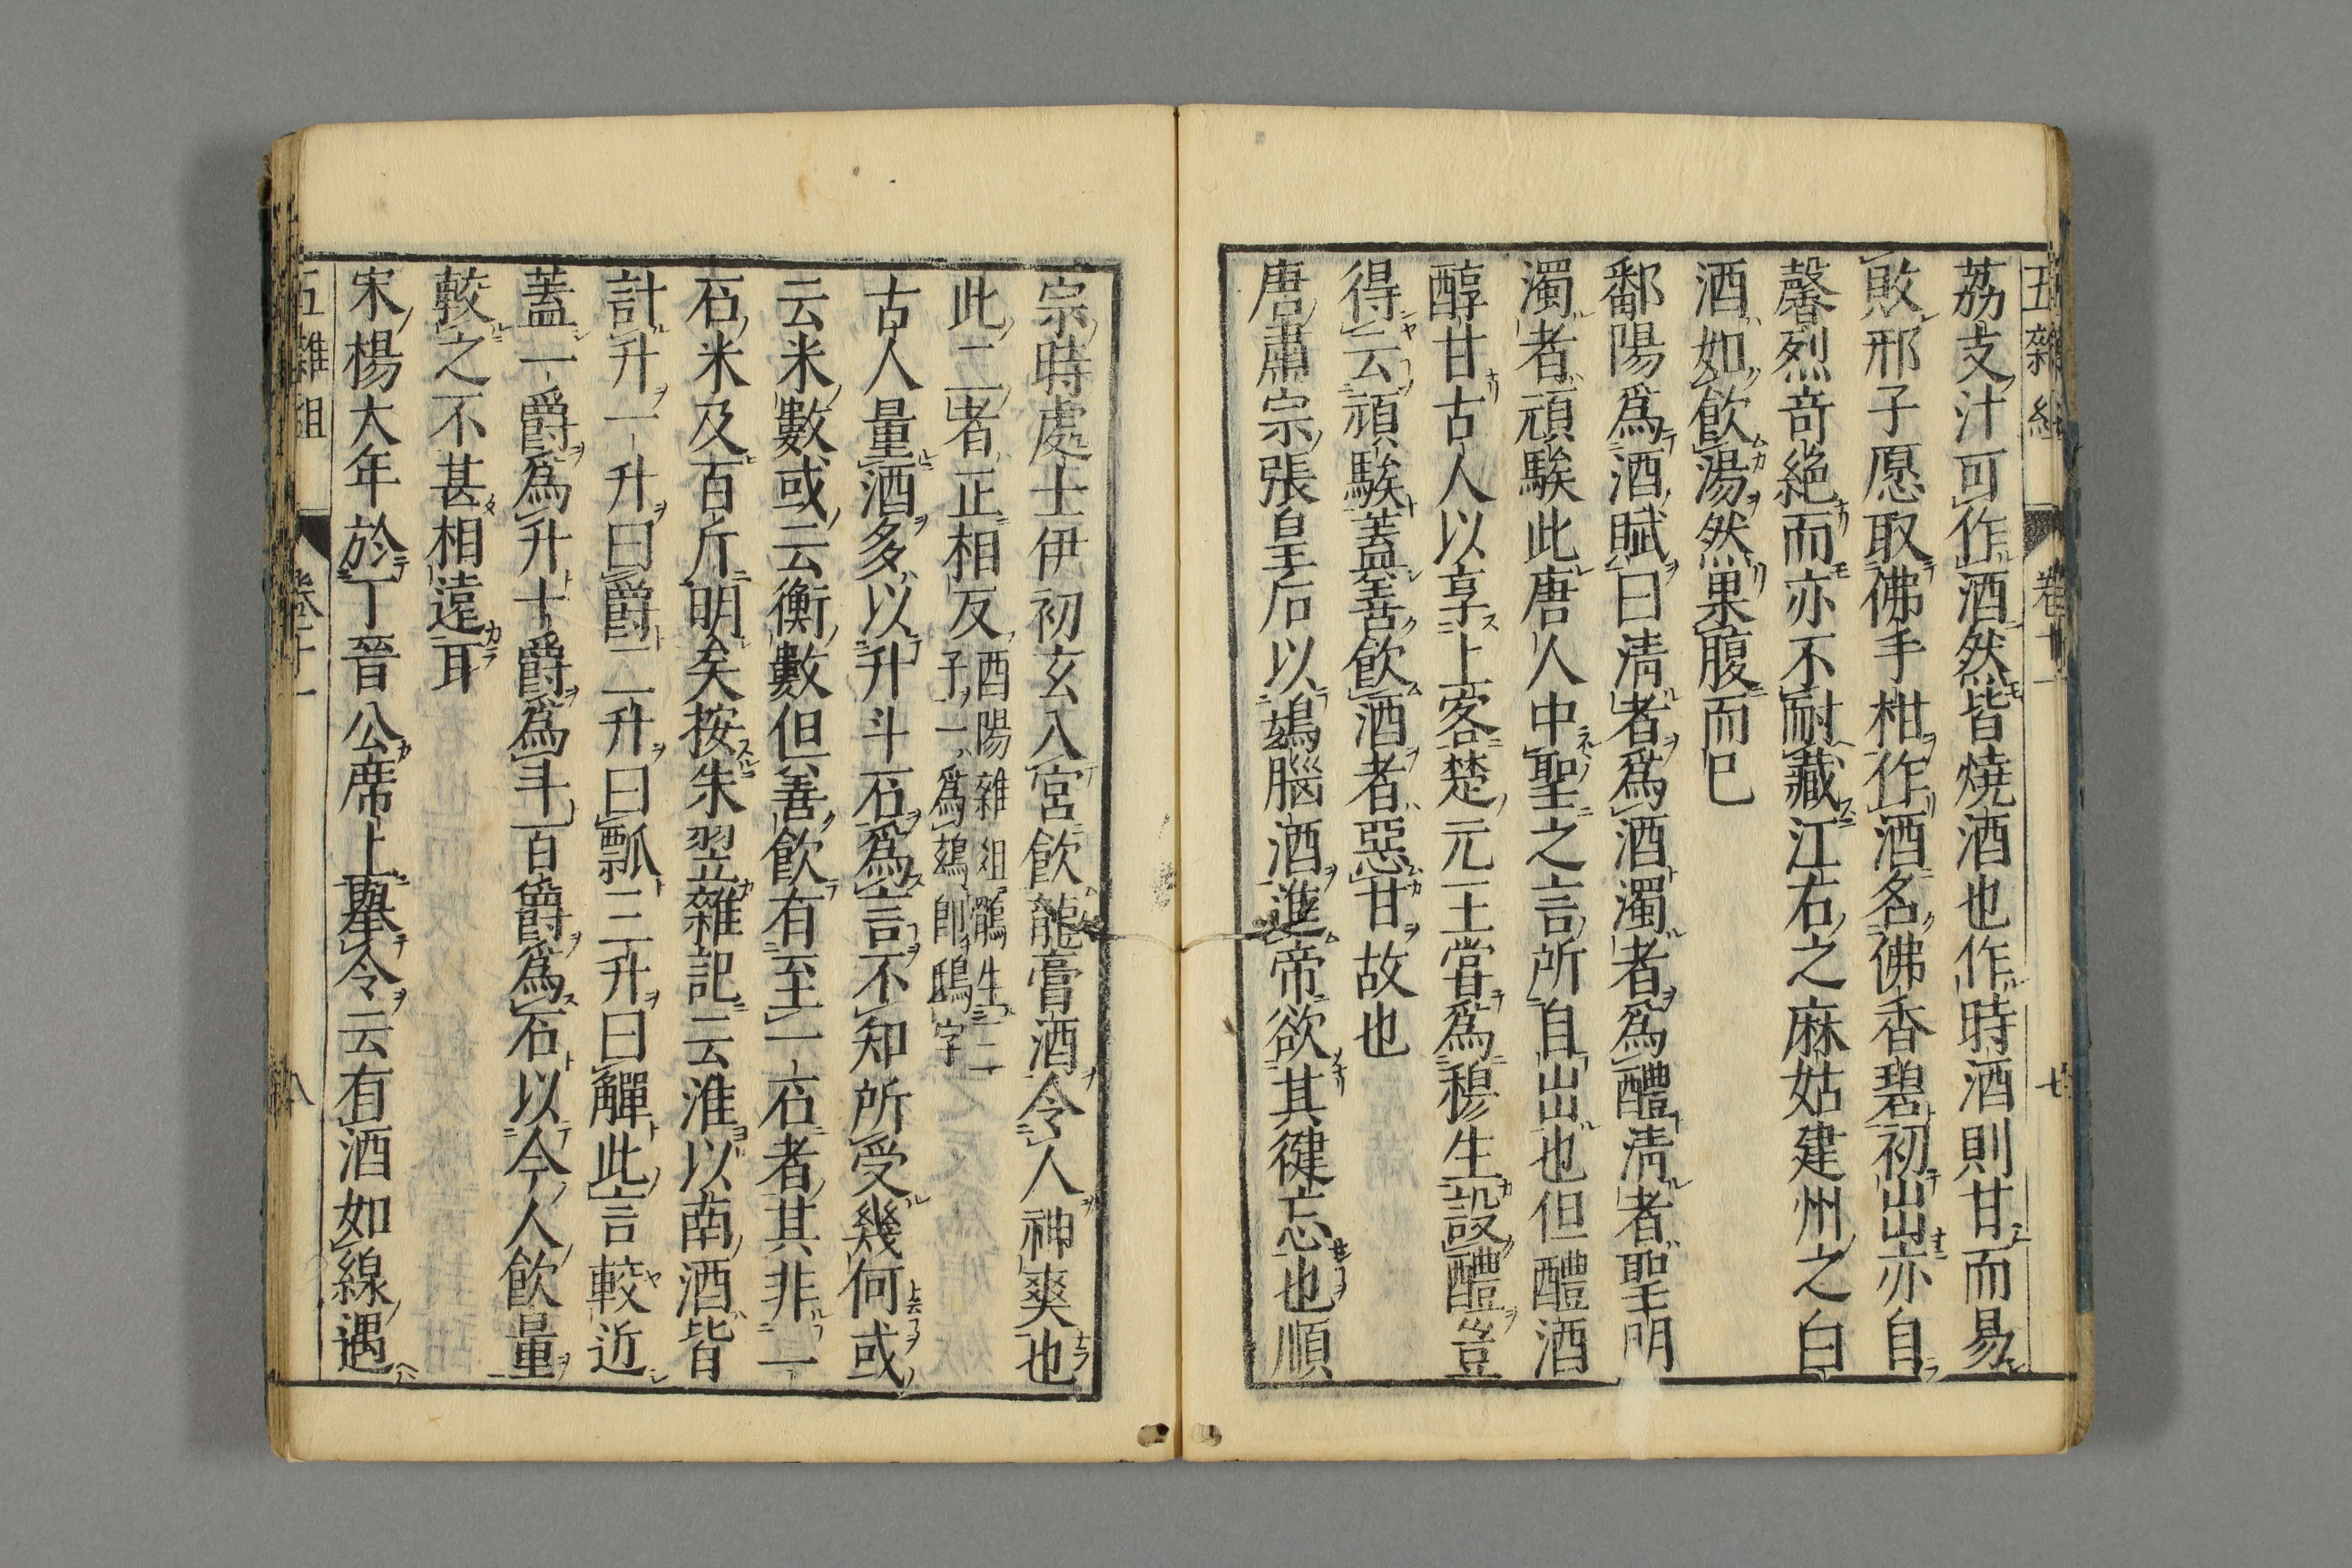 五雜組 卷十一 七
荔支汁可作酒然皆燒酒也作時酒則甘而易
敗邢子愿取佛手柑作酒名佛香碧初出亦自
馨烈奇絕而亦不耐藏江右之麻姑建州之白
酒如飲湯然果腹而已
鄱陽爲酒賦曰清者爲酒濁者爲醴清者聖明
濁者頑騃此唐人中聖之言所自出也但醴酒
醇甘古人以享上客楚元王嘗爲穆生設醴豈
得云頑騃蓋善飲酒者惡甘故也
唐肅宗張皇后以鴆腦酒進帝欲其健忘也順
宗時處士伊初玄入宮飲龍膏酒令人神爽也
此二者正相反酉陽雜俎鶻生三
子一爲鴆卽鴟字
古人量酒多以升斗石爲言不知所受幾何或
云米數或云衡數但善飲有至一石者其非一
石米及百斤明矣按朱翌雜記云淮以南酒皆
計升一升曰爵二升曰瓢三升曰觶此言較近
蓋一爵爲升十爵爲斗百爵爲石以今人飲量
較之不甚相遠耳
宋楊大年於丁晉公席上舉令云有酒如線遇
五雜組 卷十一 八